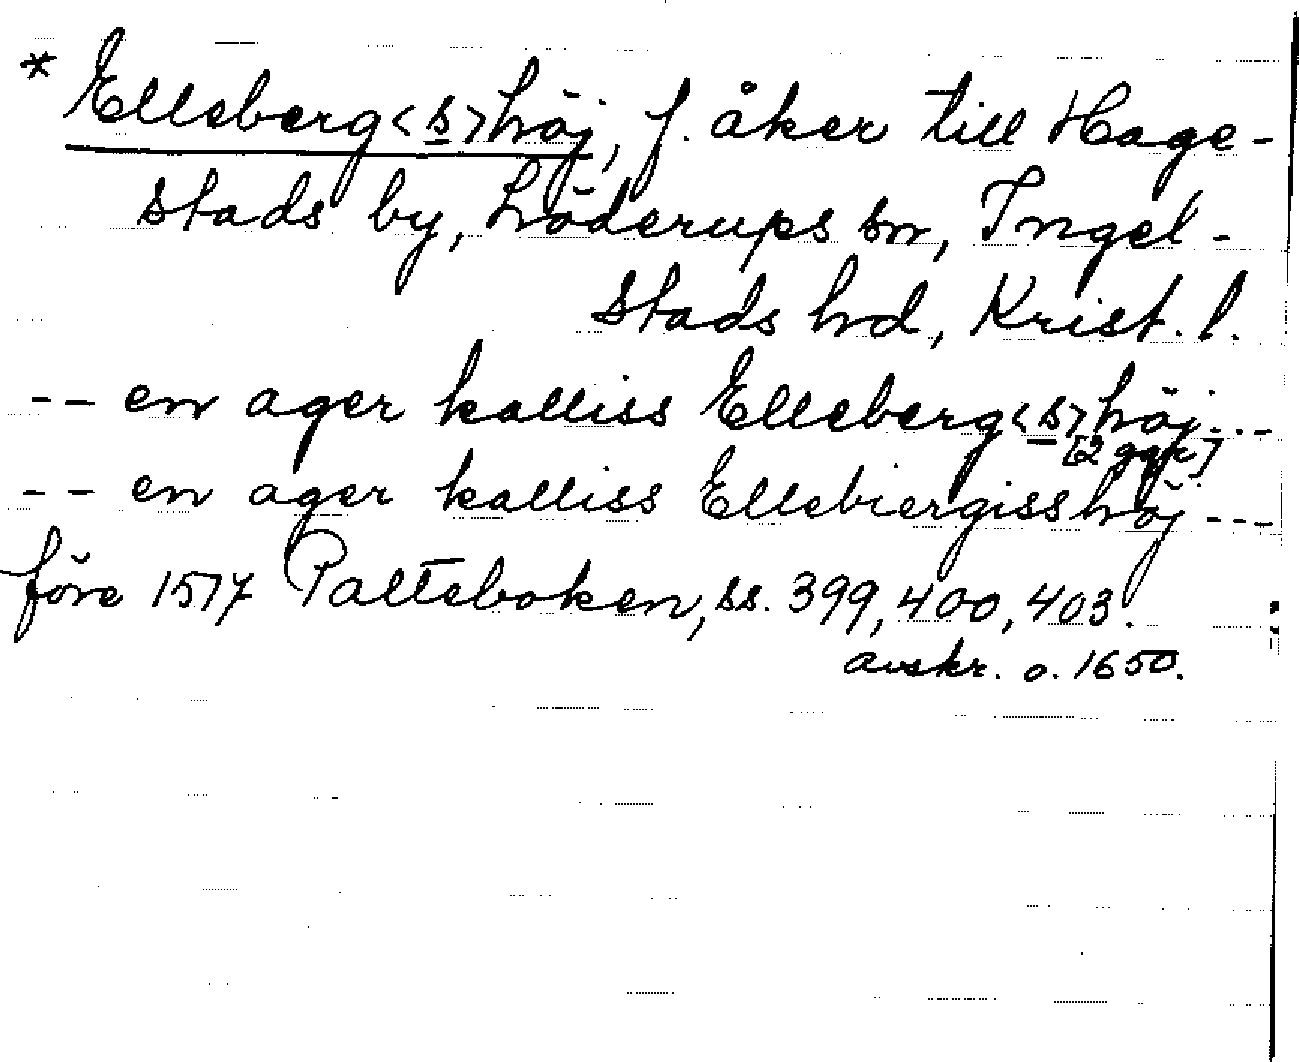 * Elleberg<s>höj, f. åker till Hage-
stads by, Löderups sn, Ingel-
stads hd, Krist. l.
-- en ager kalliss Elleberg<s>höj---
[2 ggr]
-- en ager kalliss Ellebiergisshöj---
före 1517 Palteboken, ss. 399, 400, 403.
avskr. o. 1650.